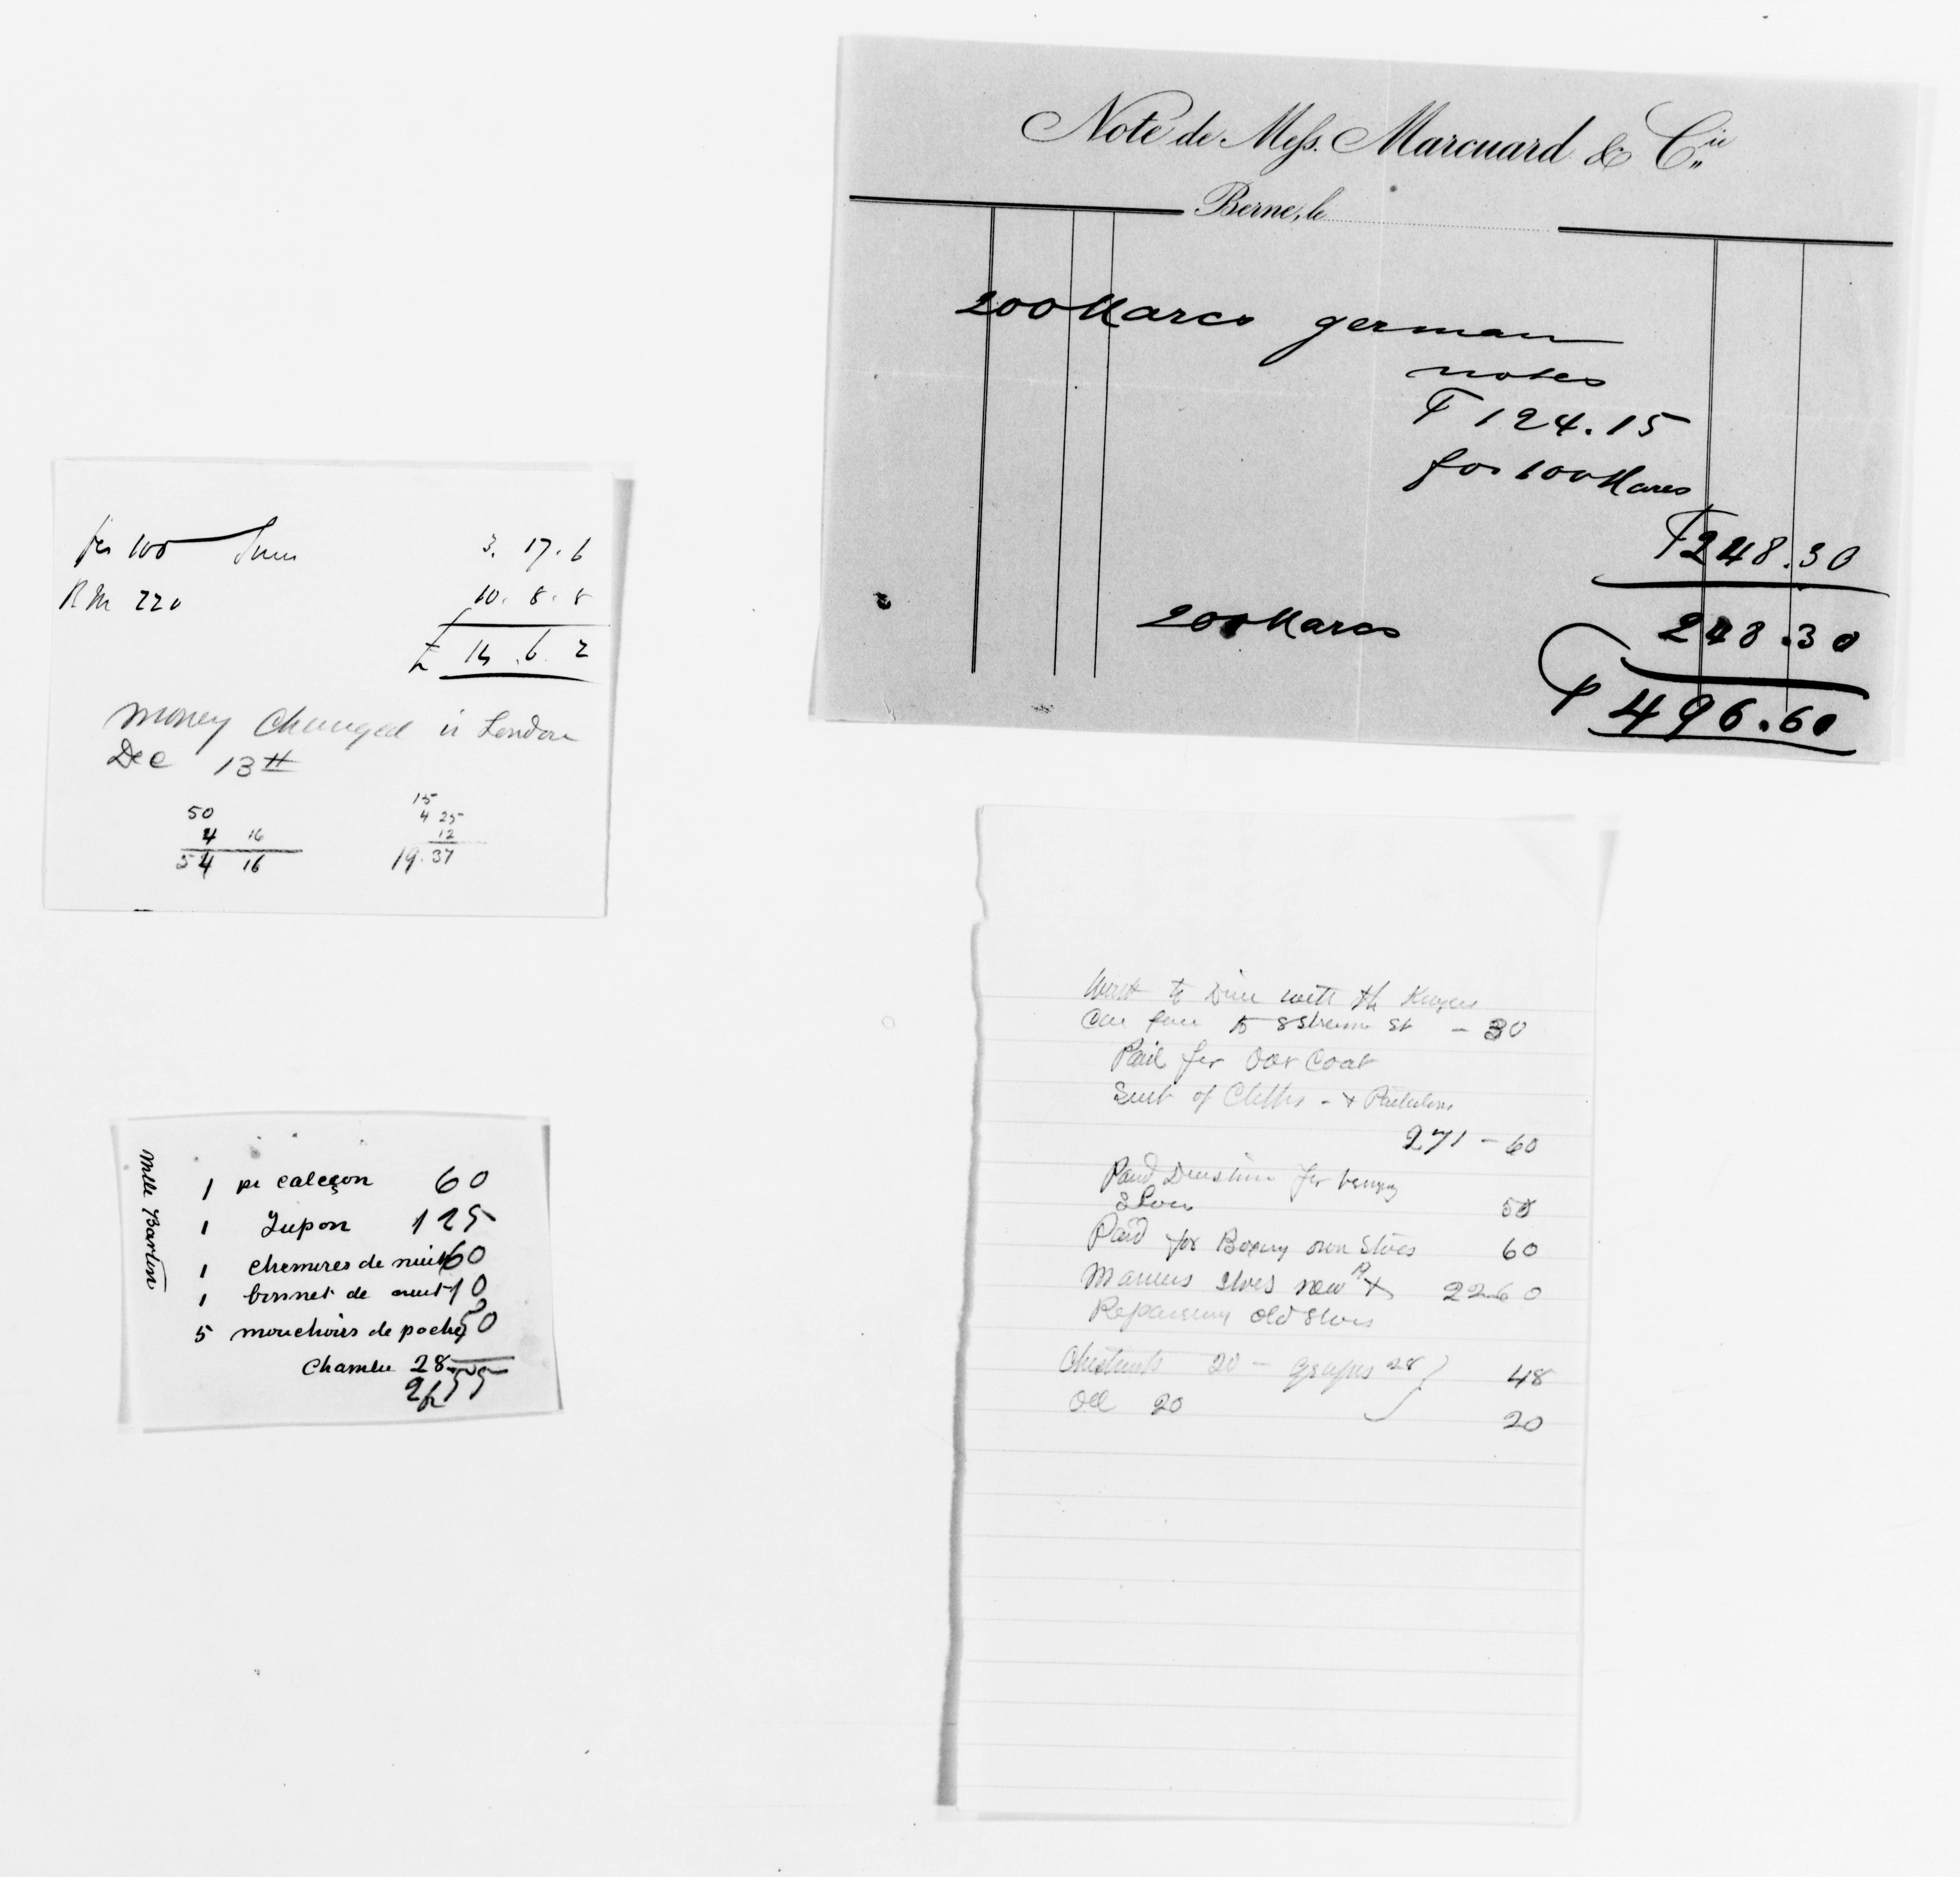 Note de Mess. Marcuard & Cie
Berne, le
200 Marcs german
notes
F 124.15
for 100 Marcs
F 248.30
200 Marcs 248.30
F 496.60
fcs 100 3. 17. 6
RM 220 10. 8. 8
£ 14. 6. 2
Money Changed in London
Dec 13th
50
4 16
54 16
15
4 25
12
19. 37
Mlle Barton
1 pr caleçon 60
1 Jupon 125
1 chemises de nuit 60
1 bonnet de nuit 10
5 mouchoirs de poche 50
Chambre 28
2f 55
Went to Dine with the
Car fare to St - 30
Paid for Over Coat
Suit of Cloths - +
271 - 60
Paid for
Shoes 50
Paid for Boxing own Stoes 60
Shoes new + 22 60
Repairing old Shoes
Chestnuts 20 - Grapes 28 } 48
Oil 20 20